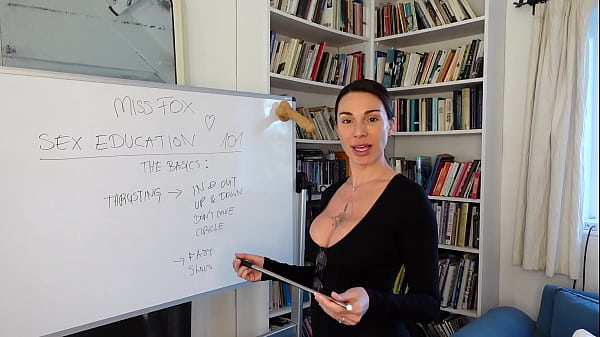 MISS FOX
SEX EDUCATION 101
THE BASICS:
THRUSTING → IN & OUT
UP & DOWN
DON'T
CIRCLE
→ FAST
SLOW